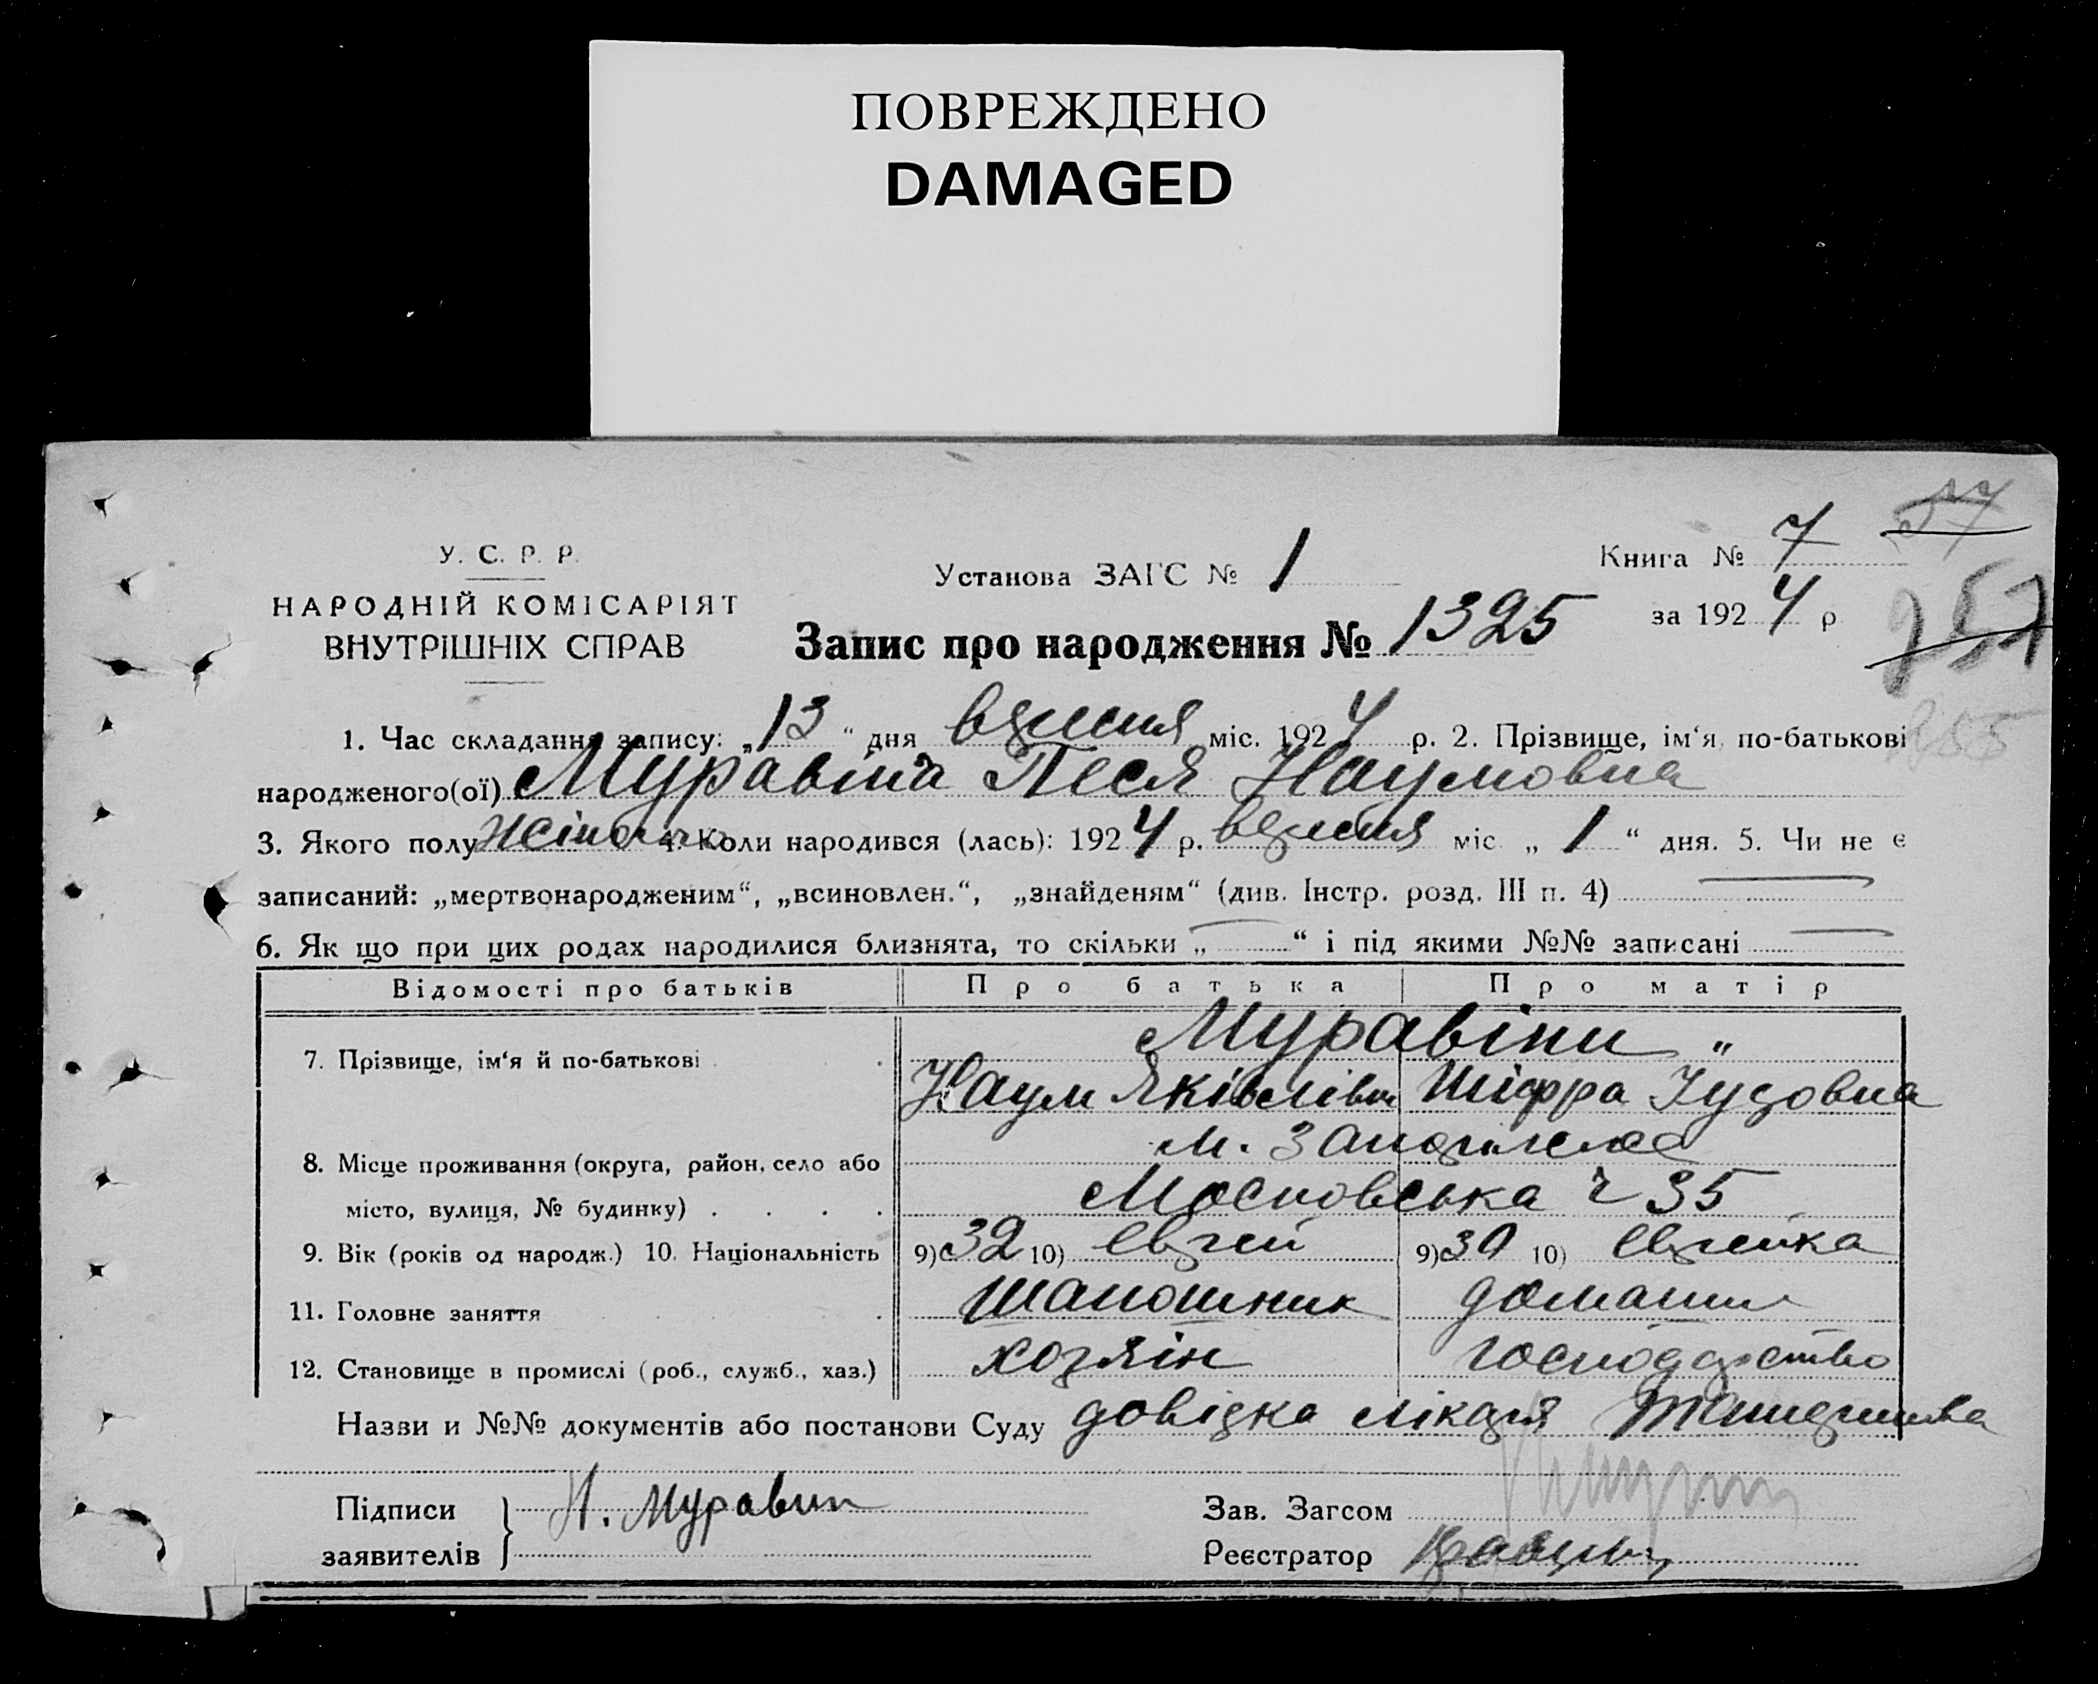 ПОВРЕЖДЕНО
DAMAGED
У. С. Р. Р.
НАРОДНІЙ КОМІСАРІЯТ
ВНУТРІШНІХ СПРАВ
Установа ЗАГС № 1
Книга № 7
за 1924 р
Запис про народження № 1325
257
1. Час складання запису: „13“ дня вересня міс. 1924 р. 2. Прізвище, ім‘я, по-батькові
народженого(ої) Муравіна Песя Наумовна
3. Якого полу жіноч. 4. Коли народився (лась): 1924 р. вересня міс „1“ дня. 5. Чи не є
записаний: „мертвонародженим“, „всиновлен.“, „знайденям“ (див. Інстр. розд. III п. 4) —
6. Як що при цих родах народилися близнята, то скільки „—“ і під якими №№ записані —
Відомості про батьків Про батька Про матір
7. Прізвище, ім‘я й по-батькові Муравіни „
Наум Яківлівич Шіфра Іудовна
8. Місце проживання (округа, район, село або
місто, вулиця, № будинку) Московська ч 35
9. Вік (років од народж.) 10. Національність 9) 32 10) Єврей 9) 30 10) Єврейка
11. Головне заняття Шапошник домашнє
12. Становище в промислі (роб., служб., хаз.) хозяін господарство
Назви и №№ документів або постанови Суду довідка лікаря
Підписи
заявителів
Н. Муравин
Зав. Загсом
Реєстратор